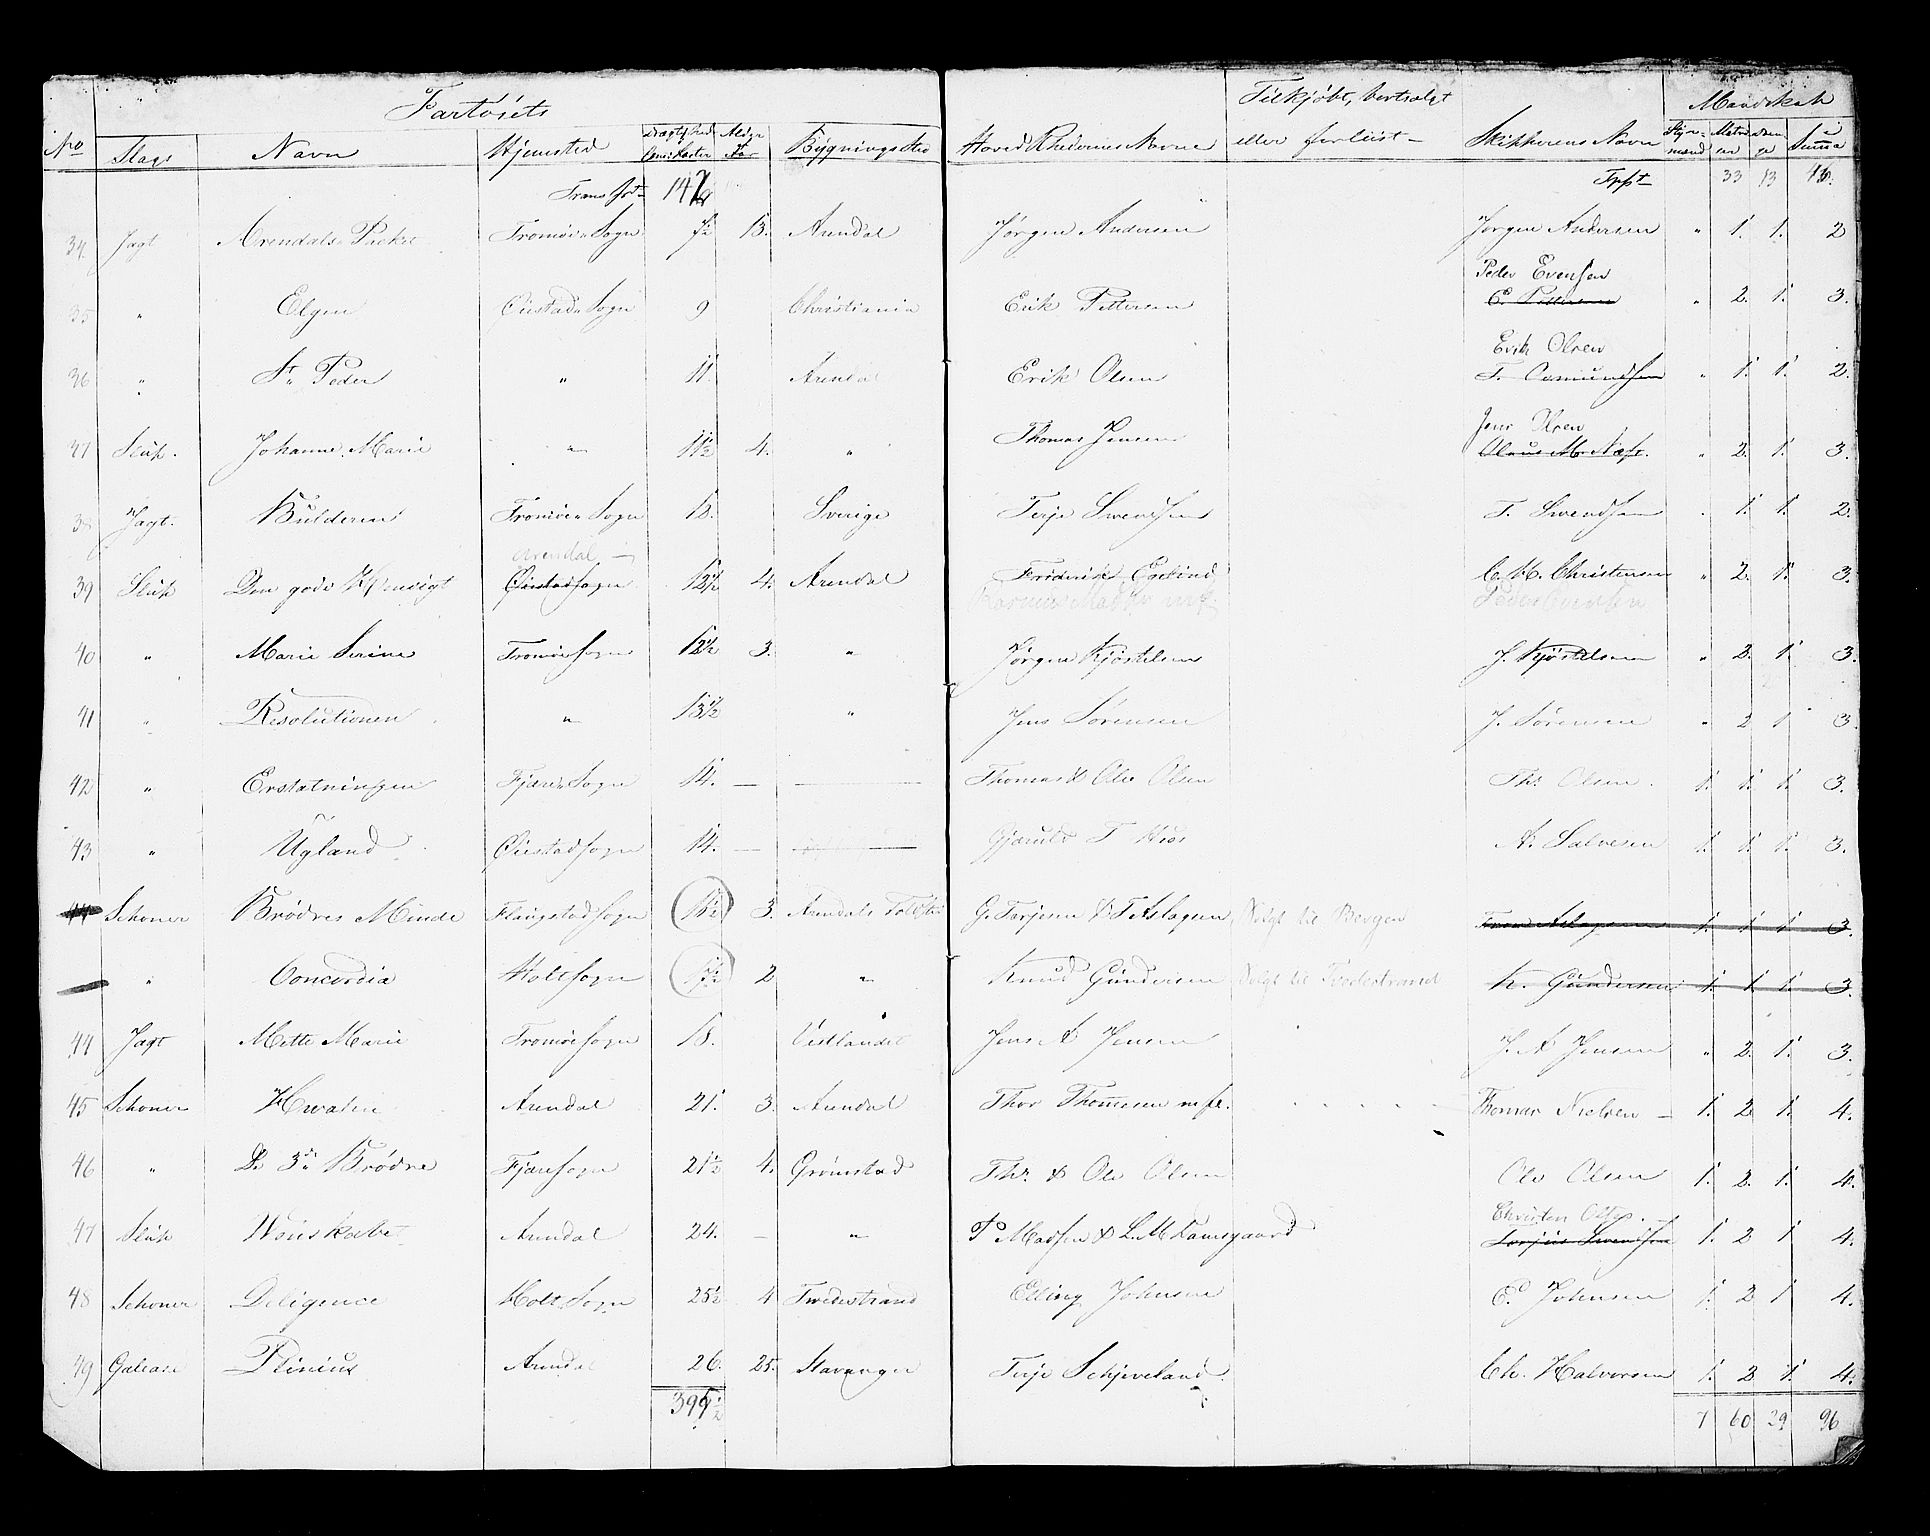 Fartöiets
Tilkjöbt, bortsolgt
Mandskab
No Slags Navn Hjemsted Drægtighed Com: Læster Alder Aar Bÿgningssted Hoved Rhedernes Navne eller forliist Skipperens Navn Styrmænd Matroser i Summa
Transpt 33 13
34 Jagt Arendals Packet Tromöe Sogn 7½ 13. Arendal Jörgen Andersen Jörgen Andersen " 1. 1. 2
Peder Evensen
35 " Elgen Öiestad Sogn 9 Christiania Erik Pettersen E. Pettersen " 2. 1. 3.
Erik Olsen
36 " St. Peder " 11. Arendal Erik Olsen T. Osmundsen " 1. 1. 2.
Jens Olsen
37 Slup. Johanne Marie " 11½ 4. " Thomas Jensen Olaus M. Næss. " 2. 1. 3.
38 Jagt. Bulderen Tromöe Sogn 12. Sverige Terje Svendsen T. Svendsen 1. 1. 2.
Arendal
39 Slup Den gode Hensigt Öiestad Sogn 12½ 4. Arendal Friderik Eselind C. H. Christensen " 2. 1. 3.
Peder Evensen
40 " Marie Serine Tromöe Sogn 12½ 3. " Jörgen Kjöstelsen J. Kjöstelsen " 2. 1. 3.
41 " Resolutionen " 13½ " Jens Sörensen J. Sörensen " 2 1 3.
42 " Erstatningen Fjære Sogn 14. — — Thomas & Ole Olsen Th. Olsen 1. 1. 1. 3.
43 " Ugland Öiestad Sogn 14. — — A. Salvesen 1. 1. 1. 3.
44 Schoner Brödres Minde Flangstad Sogn 3. Arendals G. Tarjesen & T. Aslagsen Solgt til Bergen Aslagsen 1. 1 1 3.
" Concordia Holt Sogn 17½ 2 " Knud Gundersen Solgt til Tvedestrand K. Gundersen 1. 1 1. 3.
44 Jagt Mette Marie Tromöe Sogn 18. Vestlandet Jens A Jensen J. A Jensen " 2. 1. 3.
45 Schoner Hvalen Arendal 21. 3. Arendal Thor Thommesen m fl. Thomas Nielsen 1. 2 1. 4.
46 " De 3de Brödre Fjære Sogn 21½ 4. Grimstad Th. & Ole Olsen Ole Olsen 1. 2. 1. 4.
Christen
47 Slup Venskabet Arendal 24. — " P Madsen & L. M. Tarjus Svendsen 1. 2 1 4.
48 Schoner Diligence Holt Sogn 25½ 4 Tvedestrand Elling Johnsen E. Johnsen 1. 2 1 4.
49 Galease Plinius Arendal 26. 25. Stavanger Terje Schjeveland. Ch. Halvorsen 1. 2 1. 4.
7 60 29 96